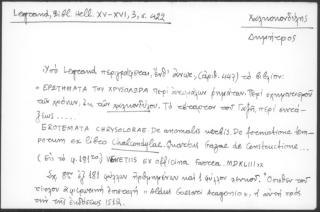 Legrand, Bibl. Hell. XV-XVI, 3, σ. 422
Χαλκοκονδύλης
Δημήτρος
Ὑπὸ Legrand περιγράφεται, ἔνθ' ἄνωτ., (ἀριθ. 447) τὸ βιβλίον:
« ΕΡΩΤΗΜΑΤΑ ΤΟΥ ΧΡΥΣΟΛΩΡΑ Περὶ ἀνωμάλων ῥημάτων. Περὶ σχηματισμοῦ
τῶν χρόνων, ἐκ τῶν χαλκονδύλου. Τὸ τέταρτον τοῦ Γαζῆ, περὶ συντά-
ξεως ....
EROTEMATA CHRYSOLORAE. De anomalis verbis. De formatione tem-
porum ex libro Chalcondylae. Quartus Gazae de Constructione...
(Ἐν τῷ φ. 181 20) VENETIIS ex officina Farrea. MDXLIII »
Σχ. 8ον ἐξ 181 φύλλων ἠριθμημένων καὶ 1 φύλλου λευκοῦ.
τίτλον ἀφιέρωσις « Aldus Caesari Aragonio », ἡ αὐτὴ πρὸς
τὴν τῆς ἐκδόσεως 1512.